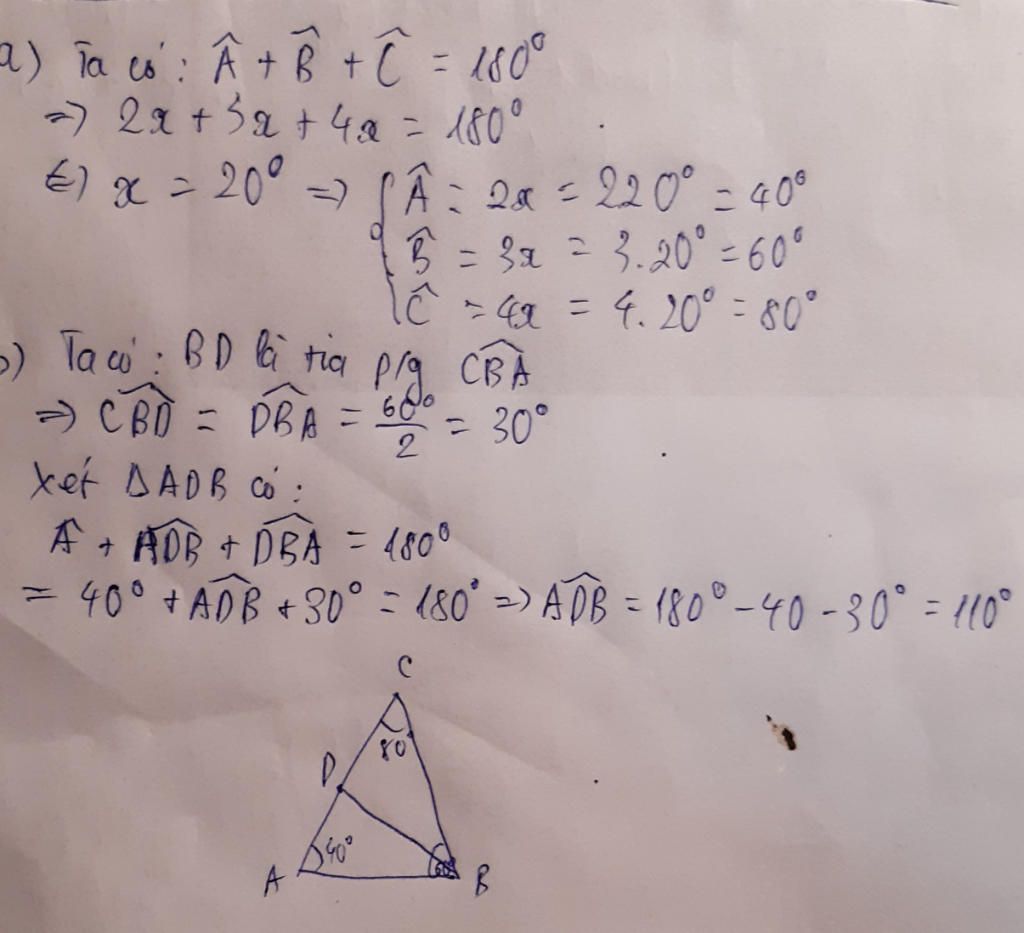 a) Ta có: Â + B̂ + Ĉ = 180°
=> 2x + 3x + 4x = 180°
<=> x = 20° => { Â = 2x = 220° = 40°
B̂ = 3x = 3.20° = 60°
Ĉ = 4x = 4.20° = 80°
b) Ta có: BD là tia p/g \widehat{CBA}
=> \widehat{CBD} = \widehat{DBA} = \frac{60°}{2} = 30°
Xét ΔADB có:
Â + \widehat{ADB} + \widehat{DBA} = 180°
= 40° + \widehat{ADB} + 30° = 180° => \widehat{ADB} = 180° - 40 - 30° = 110°
C
80
D
40°
60°
A
B